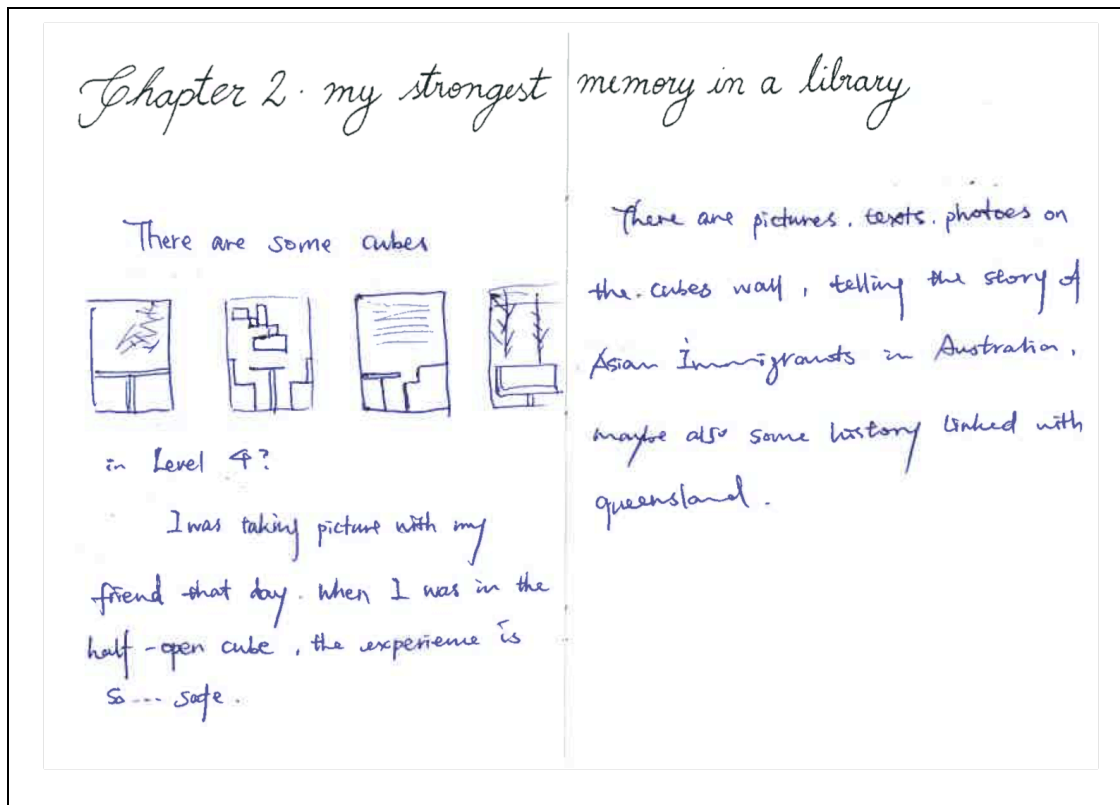 Chapter 2. my strongest memory in a library
There are some cubes
in Level 4?
I was taking picture with my
friend that day. When I was in the
half-open cube, the experience is
so.... safe.
There are pictures. texts. photoes on
the cubes wall, telling the story of
Asian Immigrants in Australia,
maybe also some history linked with
queensland.